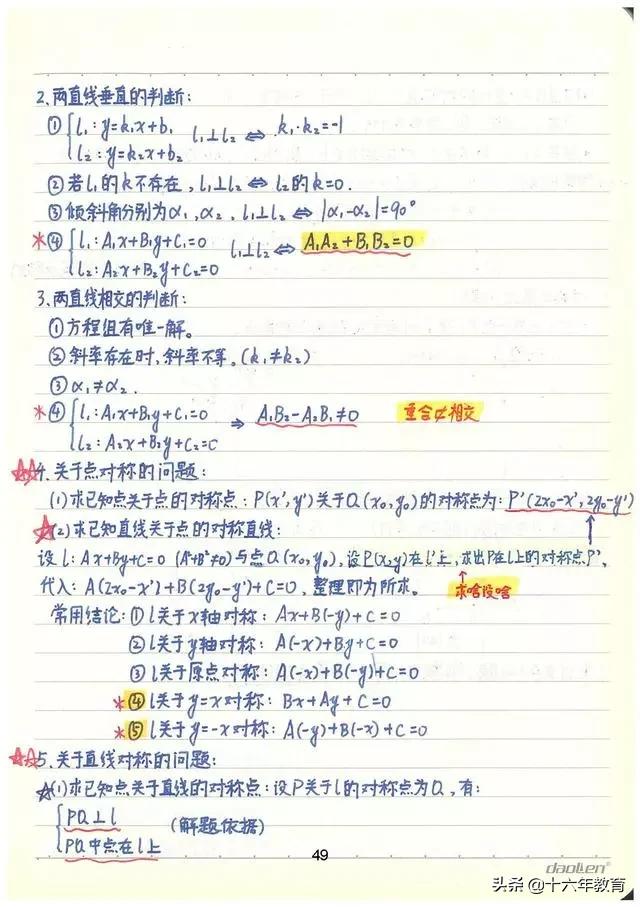 2、两直线垂直的判断：
① { l₁：y=k₁x+b₁ l₁⊥l₂ ⇔ k₁·k₂=-1
l₂：y=k₂x+b₂
② 若l₁的k不存在，l₁⊥l₂ ⇔ l₂的k=0.
③ 倾斜角分别为α₁，α₂，l₁⊥l₂ ⇔ |α₁-α₂|=90°
*④ { l₁：A₁x+B₁y+C₁=0 l₁⊥l₂ ⇔ A₁A₂+B₁B₂=0
l₂：A₂x+B₂y+C₂=0
3、两直线相交的判断：
①方程组有唯一解。
②斜率存在时，斜率不等。(k₁≠k₂)
③ α₁≠α₂.
*④ { l₁：A₁x+B₁y+C₁=0 ⇒ A₁B₂-A₂B₁≠0 重合⊄相交
l₂：A₂x+B₂y+C₂=0
☆☆4、关于点对称的问题：
(1)求已知点关于点的对称点：P(x',y')关于Q(x₀,y₀)的对称点为：P'(2x₀-x',2y₀-y')
☆(2)求已知直线关于点的对称直线：
设l：Ax+By+C=0 (A²+B²≠0)与点Q(x₀,y₀)，设P(x,y)在l'上，求出P在l上的对称点P'，
代入：A(2x₀-x')+B(2y₀-y')+C=0，整理即为所求。 ↑求啥设啥
常用结论：① l关于x轴对称：Ax+B(-y)+C=0
② l关于y轴对称：A(-x)+By+C=0
③ l关于原点对称：A(-x)+B(-y)+C=0
*④ l关于y=x对称：Bx+Ay+C=0
*⑤ l关于y=-x对称：A(-y)+B(-x)+C=0
☆☆5、关于直线对称的问题：
☆(1)求已知点关于直线的对称点：设P关于l的对称点为Q，有：
{ PQ⊥l (解题依据)
PQ中点在l上
49
daolien
头条 @十六年教育